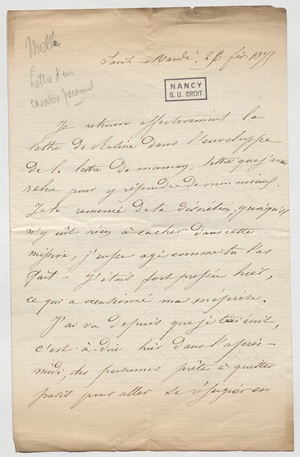 Melle
Lettre d'un
caractère personnel
Saint-Mandé 26 fév 1871
NANCY
B. U. DROIT
Je retrouve effectivement la
lettre de dans l'enveloppe
de la lettre de maman, lettre que j'avais
relue pour y répondre de mon mieux.
Je te remercie de ta discrétion, quoiqu'il
n'y eût rien à cacher dans cette
missive, j'eusse agi comme tu l'as
fait - J'étais fort pressée hier,
ce qui a occasionné ma méprise.
J'ai vu depuis que je t'ai écrit,
c'est-à-dire hier dans l'après-
midi, des personnes prêtes à quitter
Paris pour aller se réfugier en